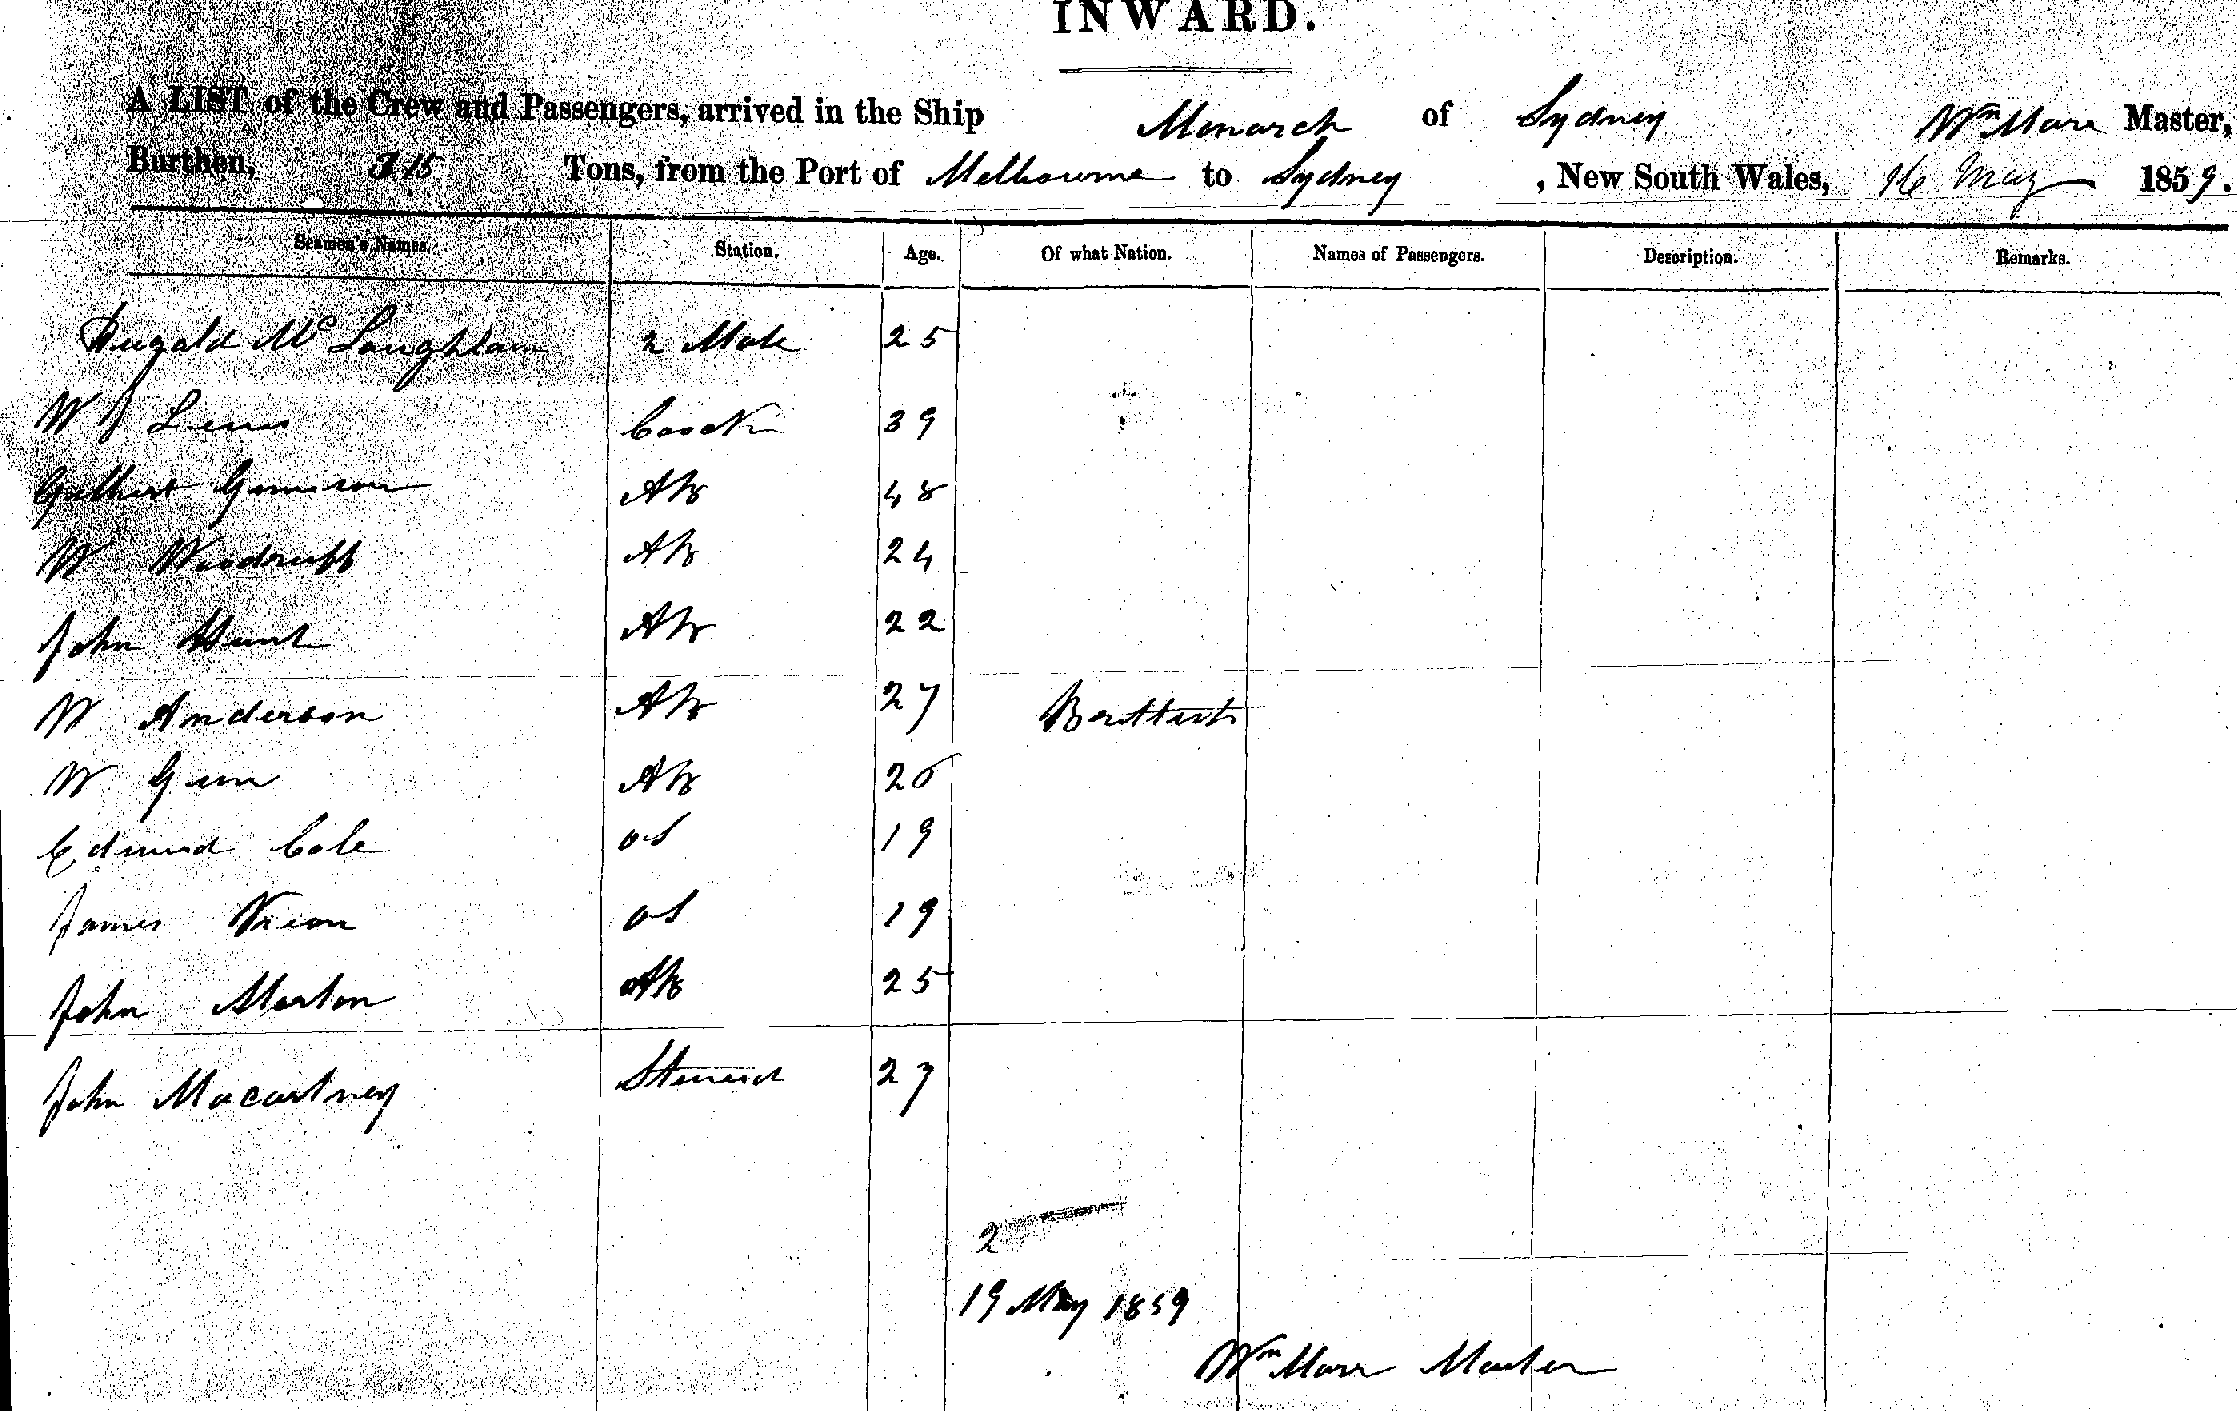 INWARD.
A LIST of the Crew and Passengers, arrived in the Ship Monarch of Sydney Wm Marr Master,
Burthen, Tons, from the Port of Melbourne to Sydney , New South Wales, 16 May 1859.
Seamen's Names. Station. Age. Of what Nation. Names of Passengers. Description. Remarks.
Dugald Mc Laughlan 2 Mate 25
W J Lewis Coock 39
Gilbert AB 48
W Woodruff AB 24
John Hunt AB 22
W Anderson AB 27
W Gunn AB 26
Edmund Cole OS 19
James Nixon OS 19
John Marton AB 25
John Macartney Steward 27
2
19 May 1859
Wm Marr Master